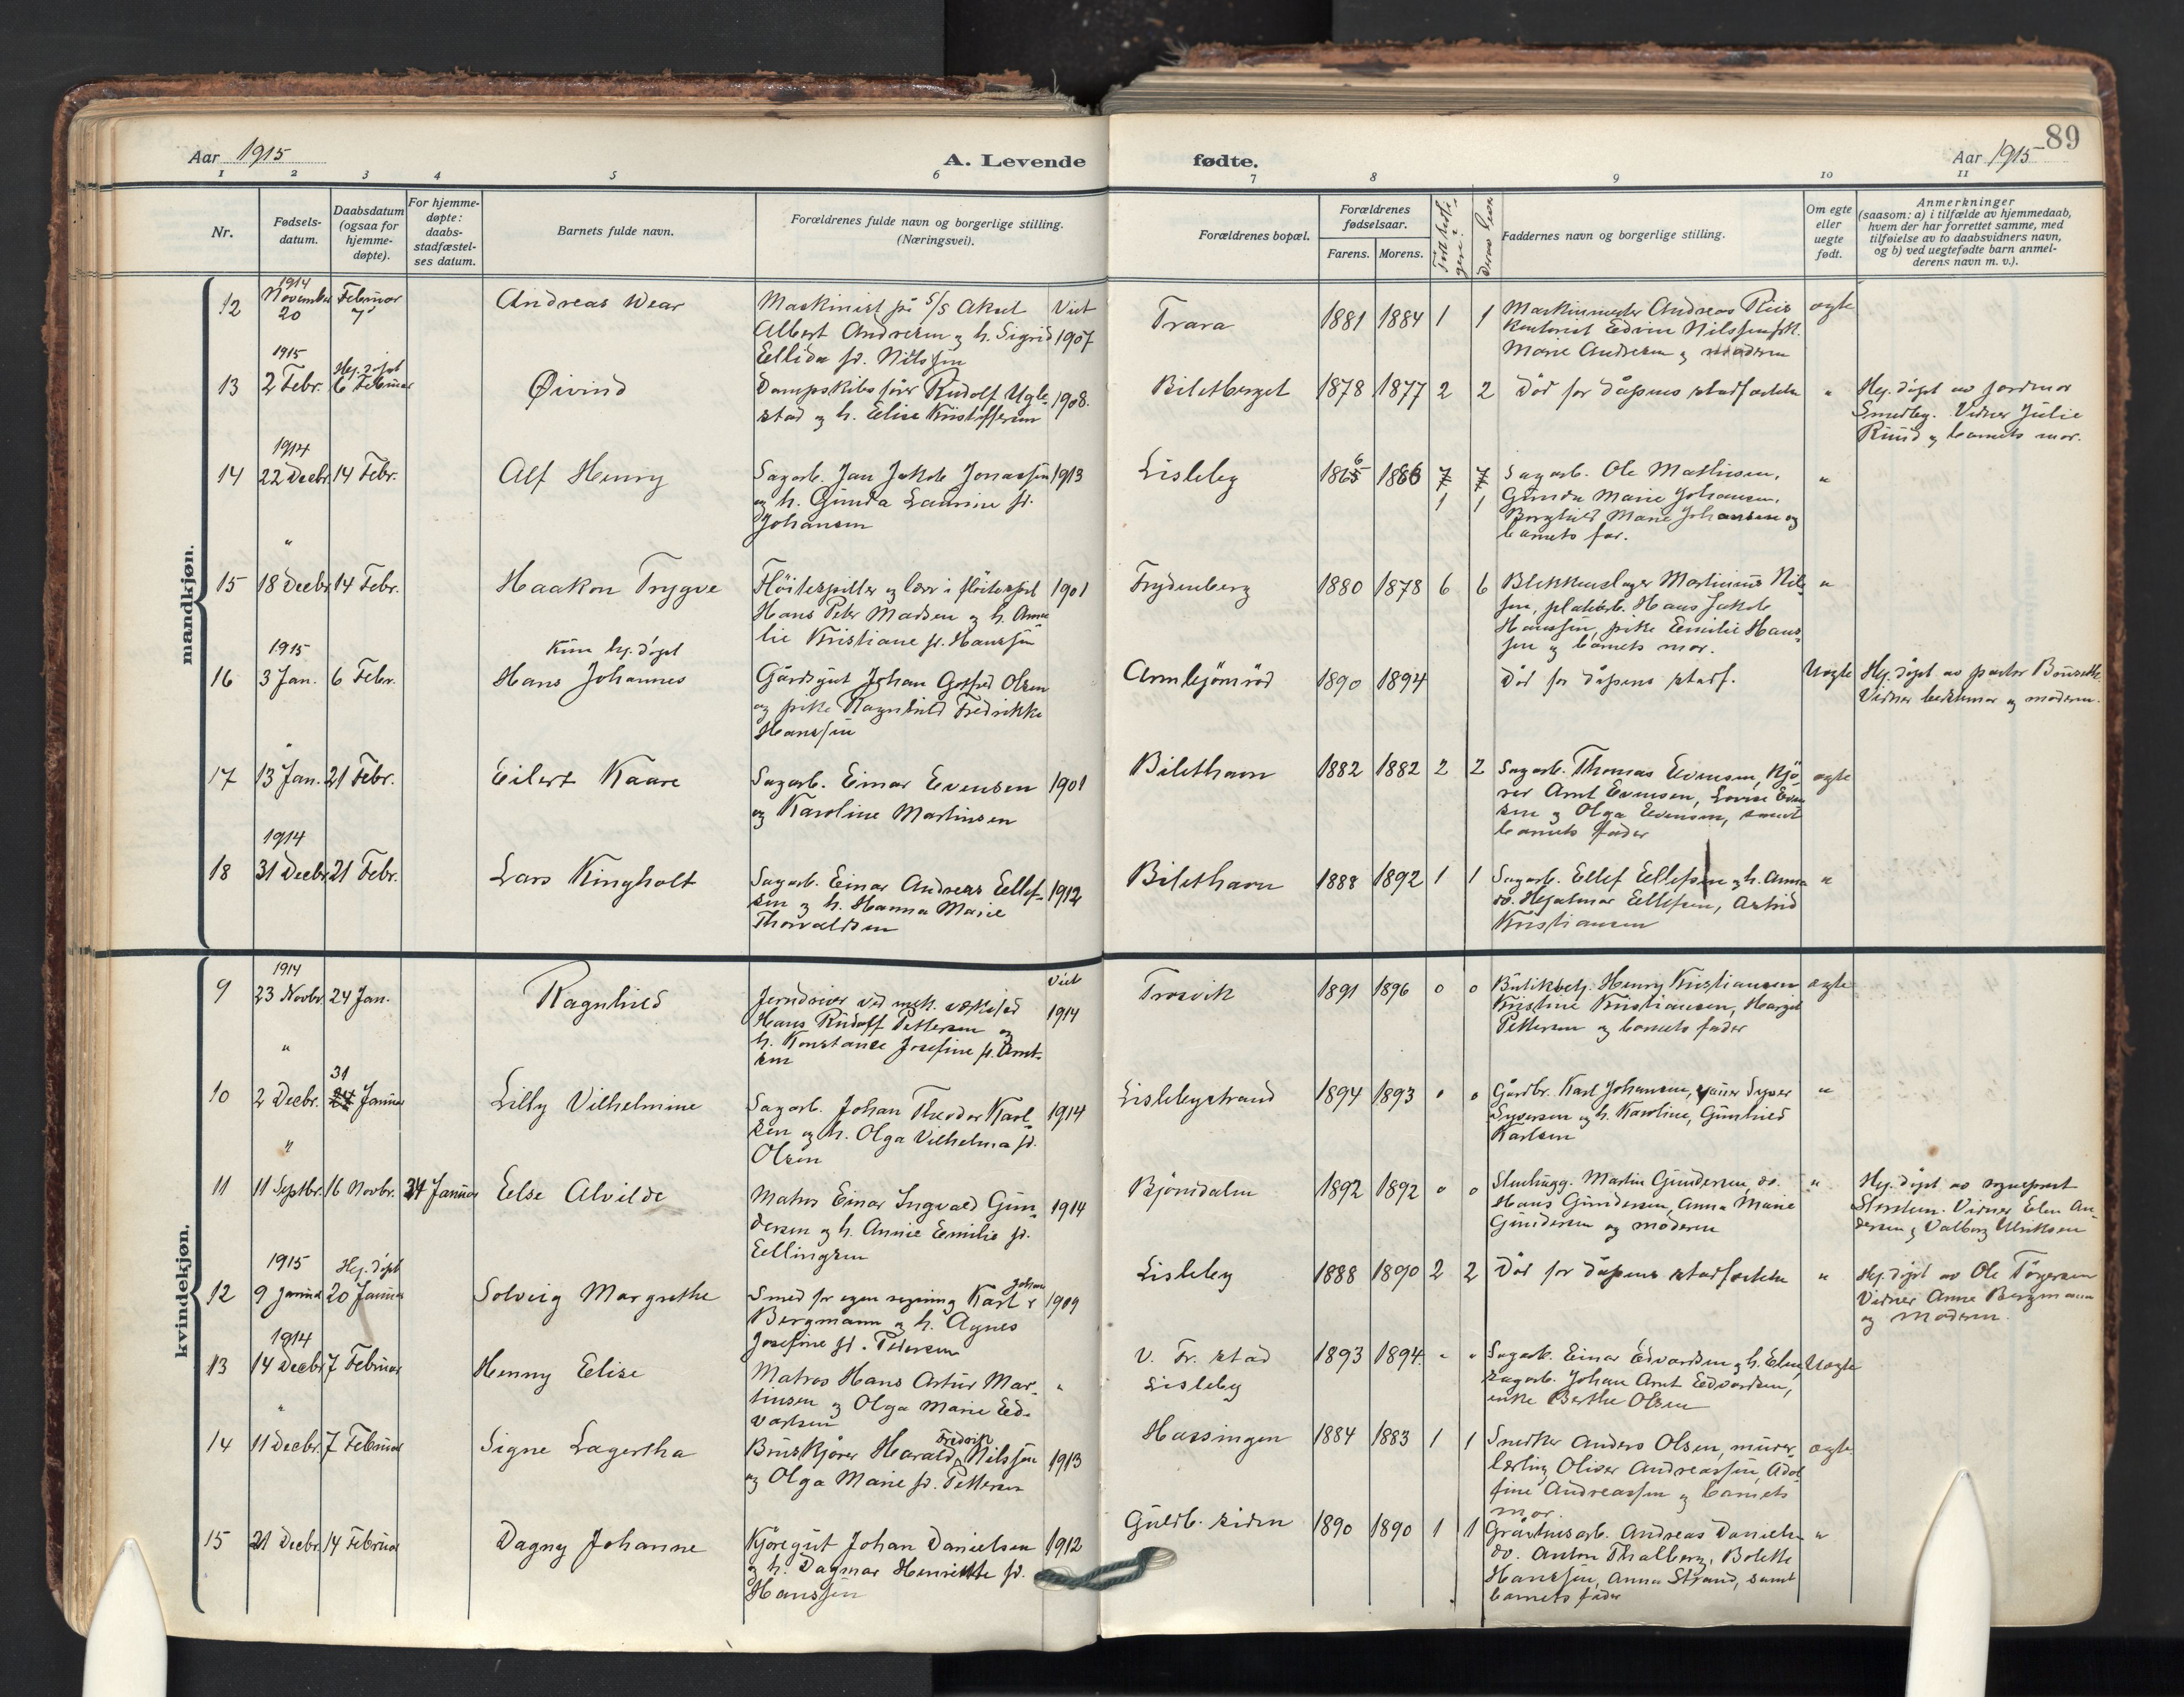 89
Aar 1915
A. Levende
fødte.
Aar 1915
1 2 3 4 5 6 7 8 9 10 11
Nr.
Fødsels-
datum.
Daabsdatum
(ogsaa for
hjemme-
døpte).
For hjemme-
døpte:
daabs-
stadfæstel-
ses datum.
Barnets fulde navn.
Forældrenes fulde navn og borgerlige stilling.
(Næringsvei).
Forældrenes bopæl.
Forældrenes
fødselsaar.
Farens. Morens.
Faddernes navn og borgerlige stilling.
Om egte
eller
uegte
født.
Anmerkninger
(saasom: a) i tilfælde av hjemmedaab,
hvem der har forrettet samme, med
tilføielse av to daabsvidners navn,
og b) ved uegtefødte barn anmel-
derens navn m. v.).
mandkjøn.
12
1914
November
20
Februar
7
Andreas Wear
Maskinist på S/S Akut
Albert Andresen og h. Sigrid
Ellida fd. Nilssen
Viet
1907
Trara
1881 1884 1 1
Maskinmester Andreas Riis
Kontorist Edvin Nilssen
Marie Andresen og moderen
ægte
13
1915
2 Febr.
Hj. døpt
6 Februar
Øivind
Dampskibsfører Rudolf Ugle-
stad og h. Elise Kristoffersen
1908.
Biletberget
1878 1877 2 2
Död før dåpens stadfæstelse
"
Hj. døpt av jordmor
Smedby. Vidner Julie
Ruud og barnets mor.
14
1914
22 Decbr.
14 Febr.
Alf Henry
Sagarb. Jan Jakob Jonassen
og h. Gunda Laurine fd.
Johansen
1913
Lisleby
1865 6 1886 7 7
1 1
Sagarb. Ole Mathisen,
Gunda Marie Johansen,
Borghild Marie Johansen og
barnets far.
"
15
"
18 Decbr
14 Febr.
Haakon Trygve
Flöitespiller og lærer i flöitespil
Hans Peter Madsen og h. Ama-
lie Kristiane fd. Hanssen
1901
Frydenberg
1880 1878 6 6
Blikkenslager Martinius Nils-
sen, platearb. Hans Jakob
Hanssen, pike Emilie Hans-
sen og barnets mor.
"
16
1915
3 Jan.
6 Febr.
Kun hj. døpt
Hans Johannes
Gårdsgut Johan Gotfred Olsen
og pike Ragnhild Fredrikke
Hanssen
Armbjörnröd
1890 1894
Död før dåpens stadf.
Uægte
Hj. døpt av pastor
Vidner bestemor og moderen.
17
"
13 Jan.
21 Febr.
Eilert Kaare
Sagarb. Einar Evensen
og Karoline Martinsen
1901
Bilethavn
1882 1882 2 2
Sagarb. Thomas Evensen, kjö-
rer Arnt Evensen, Lovise Even-
sen og Olga Evensen, samt
barnets fader
ægte
18
1914
31 Decbr
21 Febr.
Lars Kingholt
Sagarb. Einar Andreas Ellef-
sen og h. Hanna Marie
Thorvaldsen
1912
Bilethavn
1888 1892 1 1
Sagarb. Ellef Ellefsen og h. Anna
do. Hjalmar Ellefsen, Astrid
Kristiansen
"
kvindekjøn.
9
1914
23 Novbr
24 Jan.
Ragnhild
Jerndreier ved mek. verksted
Hans Rudolf Pettersen og
h. Konstanse Josefine fd. Arnt-
sen
Viet
1914
Trosvik
1891 1896 0 0
Butikbetj. Henry Kristiansen
Kristine Kristiansen, Margit
Pettersen og barnets fader
ægte
10
"
2 Decbr.
31
24 Januar
Lilly Vilhelmine
Sagarb. Johan Theodor Karl-
sen og h. Olga Vilhelma fd.
Olsen
1914
Lislebystrand
1894 1893 0 0
Gårdbr. Karl Johansen, Syver
Syversen og h. Karoline, Gunhild
Karlsen
"
11
"
11 Septbr.
16 Novbr.
24 Januar
Else Alvilde
Matros Einar Ingvald Gun-
dersen og h. Annie Emilie fd.
Ellingsen
1914
Björndalen
1892 1892 0 0
Stenhugg. Martin Gundersen, do.
Hans Gundersen, Anna Marie
Gundersen og moderen
"
Hj. døpt av sogneprest
Vidner Elen An-
dersen, Valborg Ulriksen
12
1915
9 Januar
Hj. døpt
20 Januar
Solveig Margrethe
Smed for egen regning Karl Johan
Bergmann og h. Agnes
Josefine fd. Pedersen
1909
Lisleby
1888 1890 2 2
Död før dåpens stadfæstelse
"
Hj. døpt av Ole Törgersen
Vidner Anne Bergmann
og moderen.
13
1914
14 Decbr
7 Februar
Henny Elise
Matros Hans Artur Mar-
tinsen og Olga Marie Ed-
vardsen
"
V. Fr. stad
Lisleby
1893 1894 " "
Sagarb. Einar Edvardsen og h. Elen,
sagarb. Johan Arnt Edvardsen,
enke Berthe Olsen
Uægte
14
"
11 Decbr.
7 Februar
Signe Lagertha
Bruskjører Harald Fredrik Nilssen
og Olga Marie fd. Pettersen
1913
Hassingen
1884 1883 1 1
Snedker Anders Olsen, murer-
lærling Oliver Andreassen, Adol-
fine Andreassen og barnets
mor.
ægte
15
21 Decbr
14 Februar
Dagny Johanne
Kjöregut Johan Danielsen
og h. Dagmar Henriette fd.
Hanssen
1912
Guldb. siden
1890 1890 1 1
Gråstensarb. Andreas Danielsen
do. Anton Thalberg, Bolette
Hanssen, Anna Strand, samt
barnets fader
"